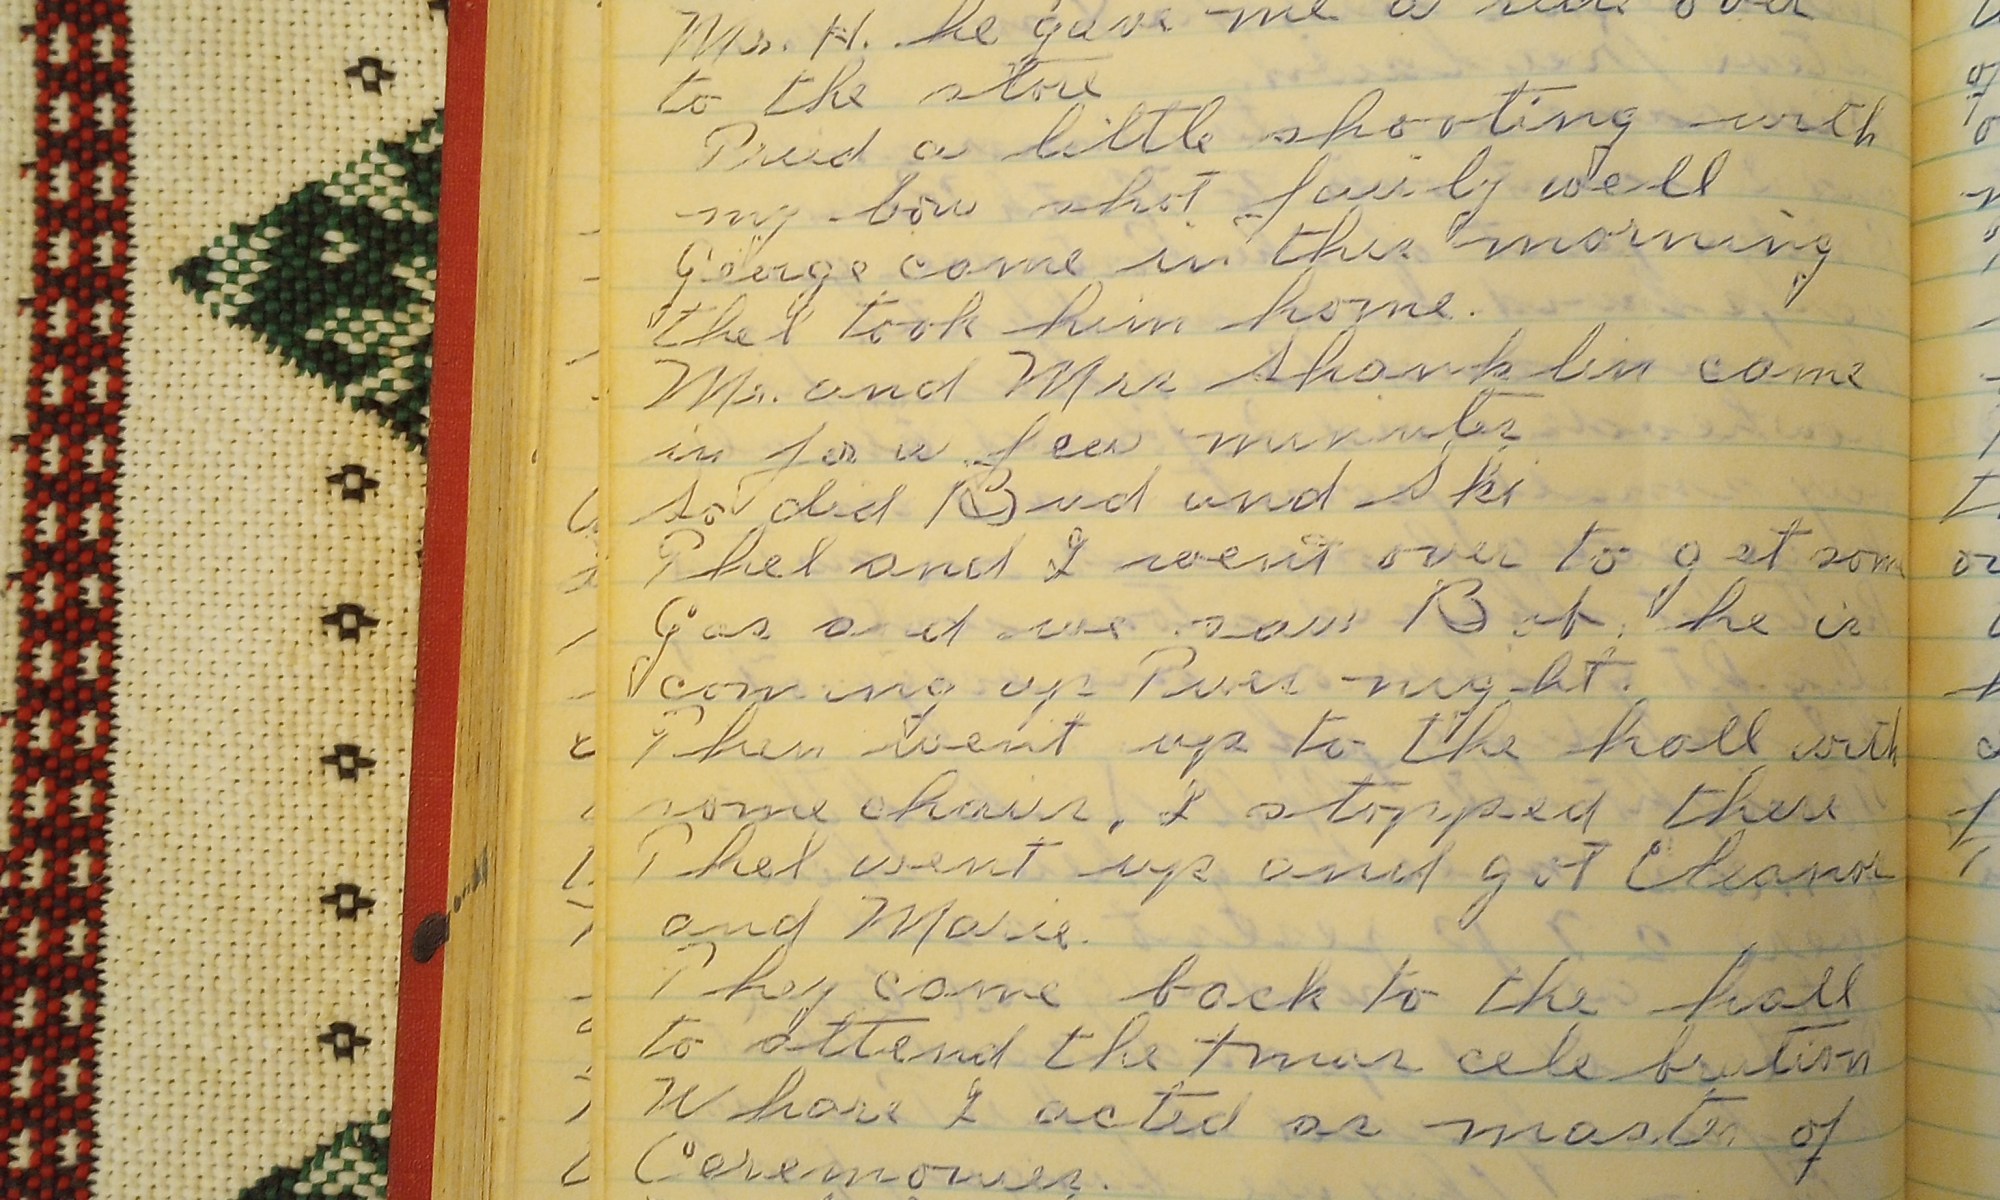 Mr. H. he gave me a ride over
to the store
Tried a little shooting with
my bow shot fairly well
George come in this morning
thel took him home.
Mr. and Mrs Shanklin come
in for a few minutes
so did Bud and Ski
Thel and I went over to get some
Gas and we saw Bob, he is
coming up Tues night.
Then went up to the hall with
some chairs, I stopped there
Thel went up and got Eleanor
and Marie.
They come back to the hall
to attend the Xmas celebration
Where I acted as master of
Ceremonies.